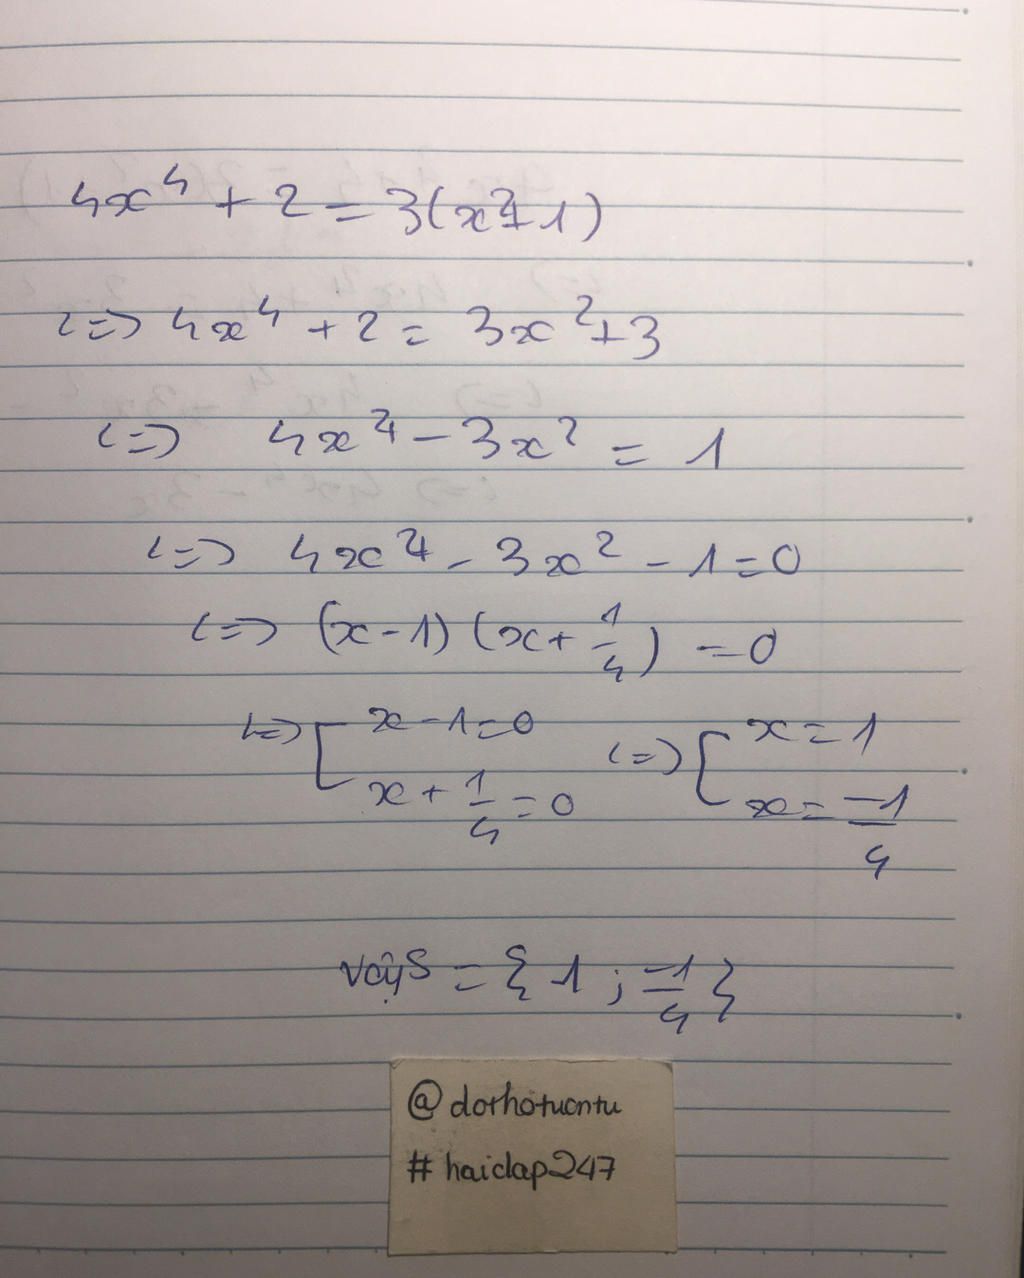 4x⁴ + 2 = 3(x²+1)
<=> 4x⁴ + 2 = 3x²+3
<=> 4x⁴ - 3x² = 1
<=> 4x⁴ - 3x² - 1 = 0
<=> (x-1) (x + 1/4) = 0
<=> [ x-1=0 <=> [ x = 1
x + 1/4 = 0 x = -1/4
Vậy S = { 1 ; -1/4 }
@dorhotuontu
#haidap247